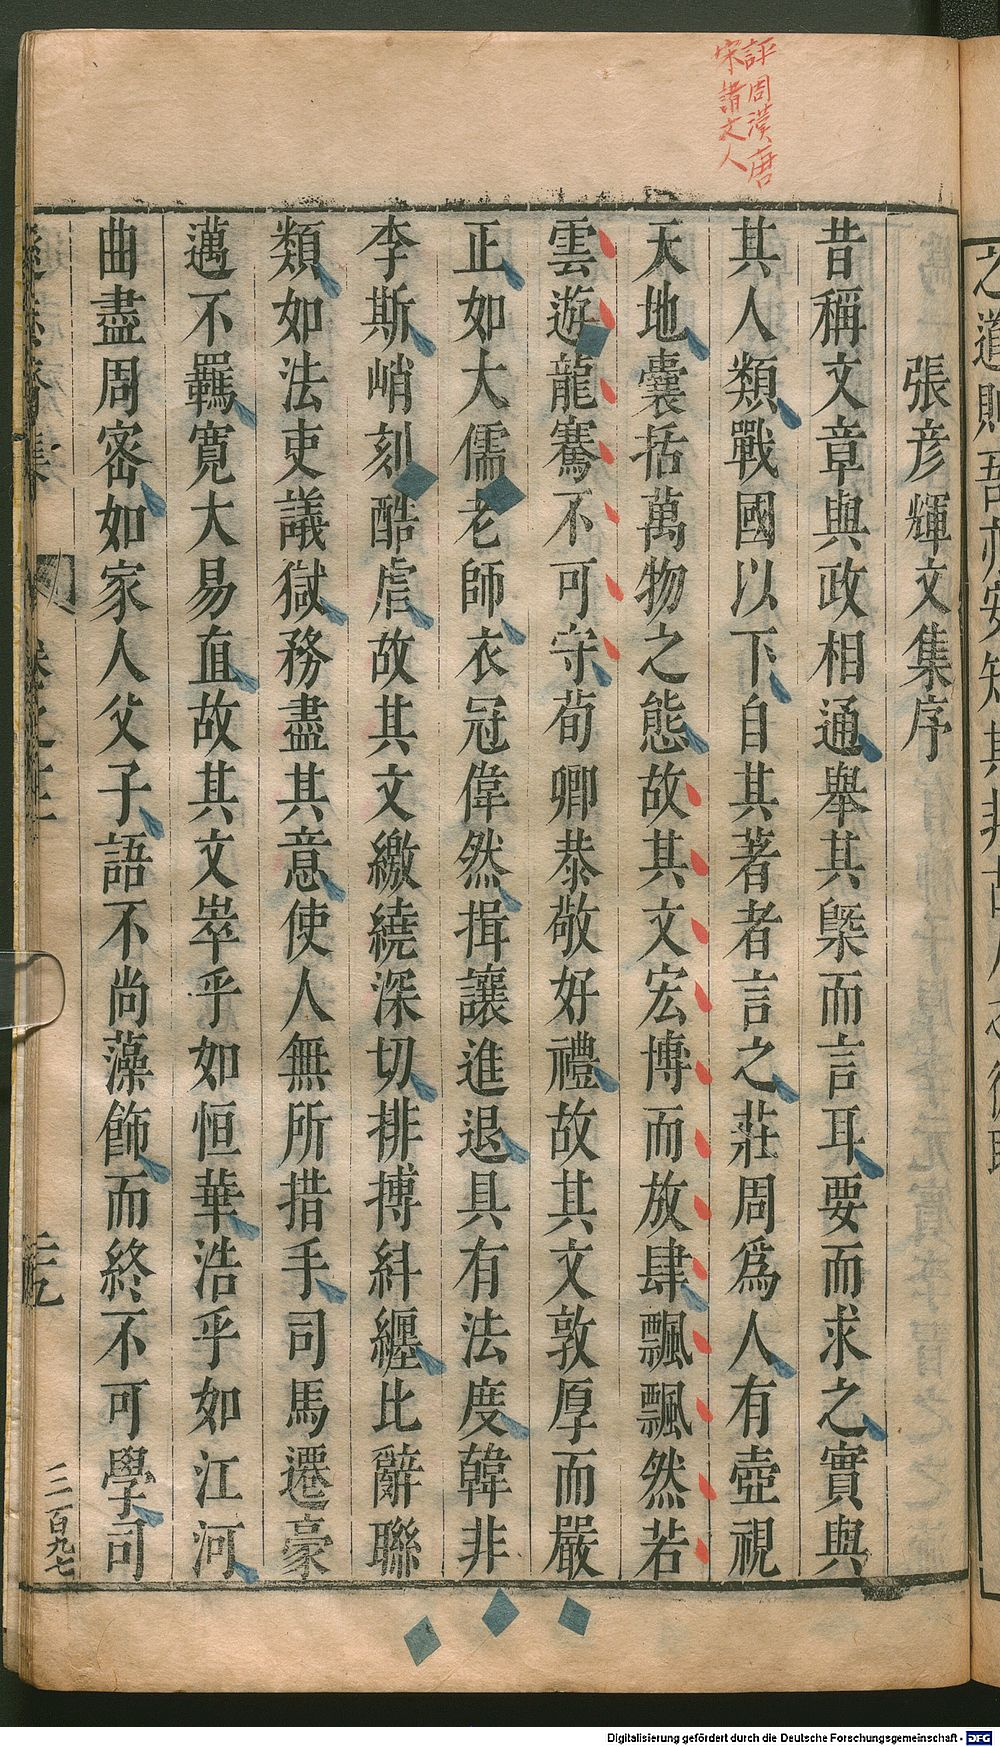 評周漢唐
宋諸文人
張彥輝文集序
昔稱文章與政相通舉其槩而言耳要而求之實與
其人類戰國以下自其著者言之莊周爲人有壺視
天地囊括萬物之態故其文宏博而放肆飄飄然若
雲遊龍騫不可守荀卿恭敬好禮故其文敦厚而嚴
正如大儒老師衣冠偉然揖讓進退具有法度韓非
李斯峭刻酷虐故其文繳繞深切排搏糾纏比辭聯
類如法吏議獄務盡其意使人無所措手司馬遷豪
邁不羈寬大易直故其文崒乎如恒華浩乎如江河
曲盡周密如家人父子語不尚藻飾而終不可學司
Digitalisierung gefördert durch die Deutsche Forschungsgemeinschaft - DFG